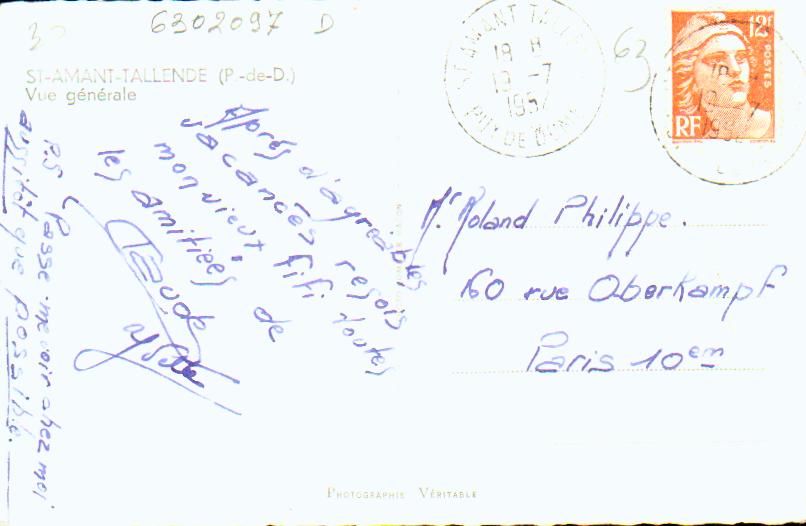 30
6302097 D
ST-AMANT-TALLENDE (P.-de-D.)
Vue générale
Après d'agréables
vacances resois
mon vieux fifi toutes
les amitiées de
Claude
PS Passe me voir chez moi
aussitot que possible.
ST AMANT TALLENDE
18 H
19 -7
195
PUY DE DOME
63
12F
POSTES
RF
Mr. Roland Philippe.
160 rue Oberkampf
Paris 10em
PHOTOGRAPHIE VÉRITABLE